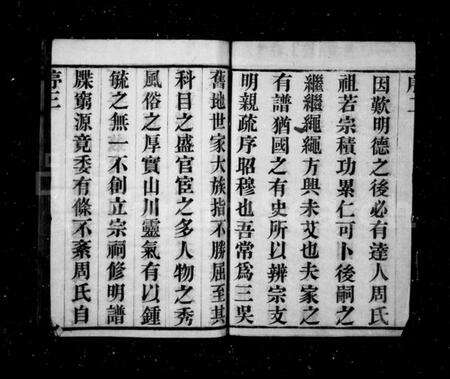 序二
因歎明德之後必有達人周氏
祖若宗積功累仁可卜後嗣之
繼繼繩繩方興未艾也夫家之
有譜猶國之有史所以辨宗支
明親疏序昭穆也吾常為三吳
舊地世家大族指不勝屈至其
科目之盛官宦之多人物之秀
風俗之厚實山川靈氣有以鍾
毓之無一不創立宗祠修明譜
牒窮源竟委有條不紊周氏自
序三